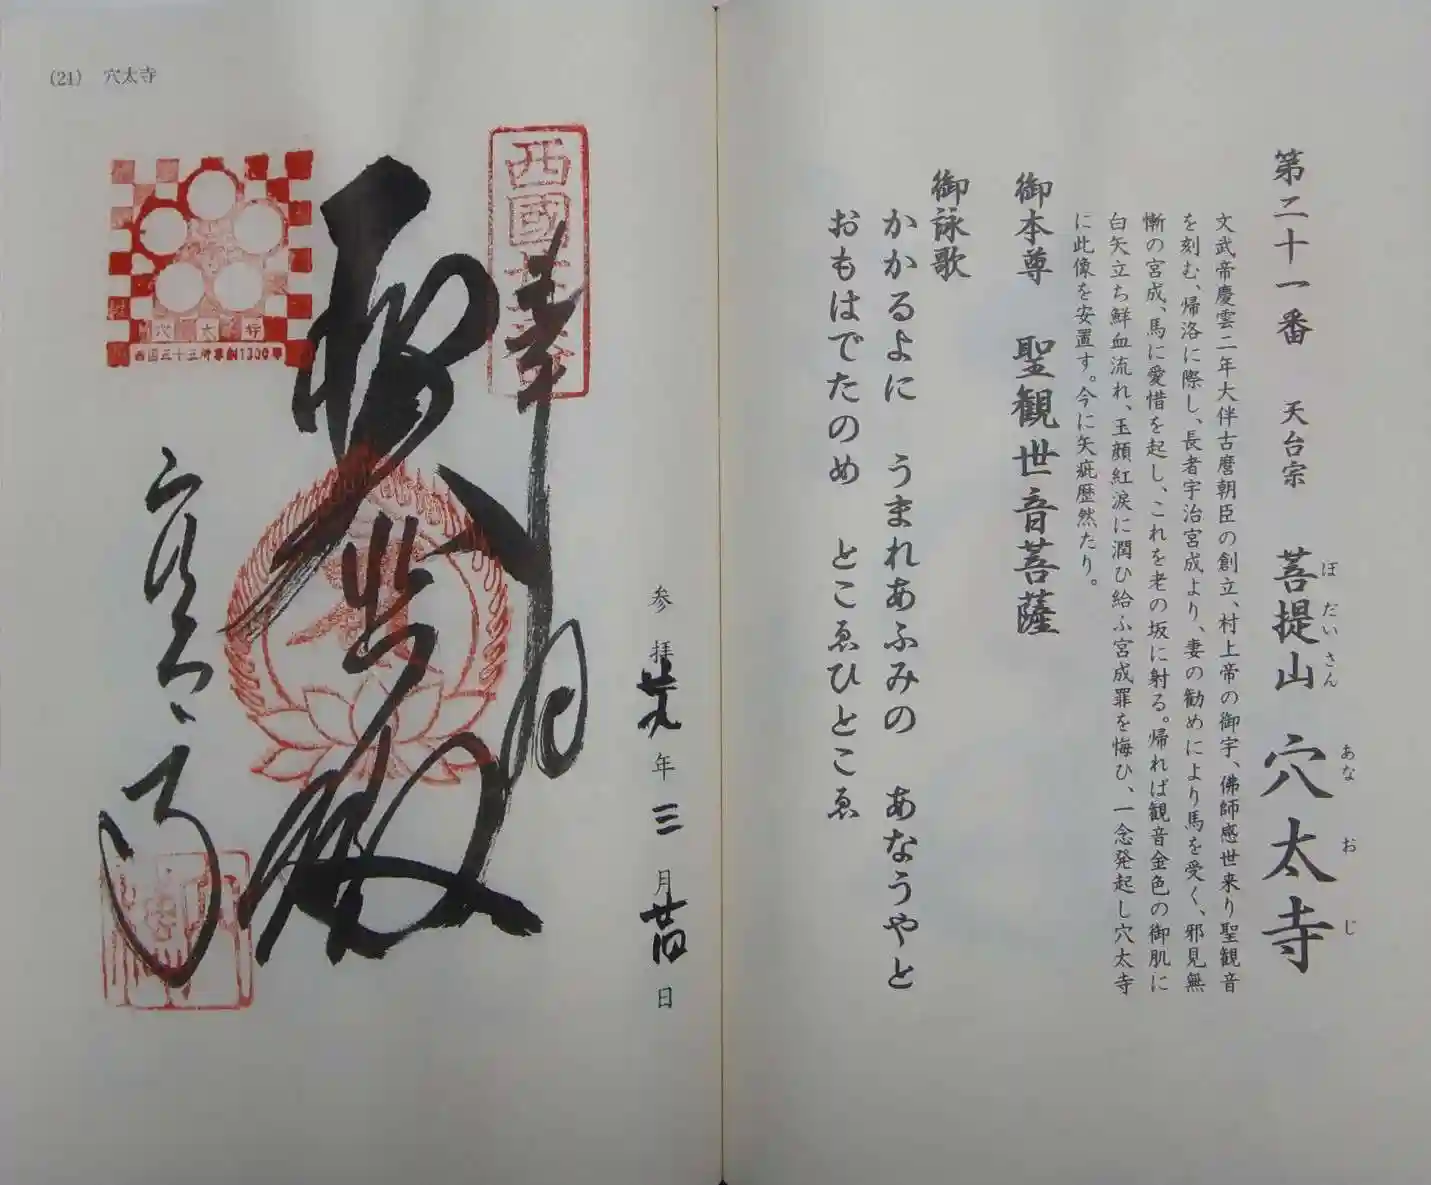 第二十一番 天台宗 菩提山 穴太寺
ぼだいさん あなおじ
文武帝慶雲二年大伴古麿朝臣の創立、村上帝の御宇、佛師感世来り聖観音
を刻む、帰洛に際し、長者宇治宮成より、妻の勧めにより馬を受く、邪見無
慚の宮成、馬に愛惜を起し、これを老の坂に射る。帰れば観音金色の御肌に
白矢立ち鮮血流れ、玉顔紅涙に潤ひ給ふ宮成罪を悔ひ、一念発起し穴太寺
に此像を安置す。今に矢疵歴然たり。
御本尊 聖観世音菩薩
御詠歌
かかるよに うまれあふみの あなうやと
おもはでたのめ とこゑひとこゑ
(21) 穴太寺
参拝廿九年三月廿四日
奉拝
西國廿一番
聖大悲殿
穴太寺
西国三十三所草創1300年